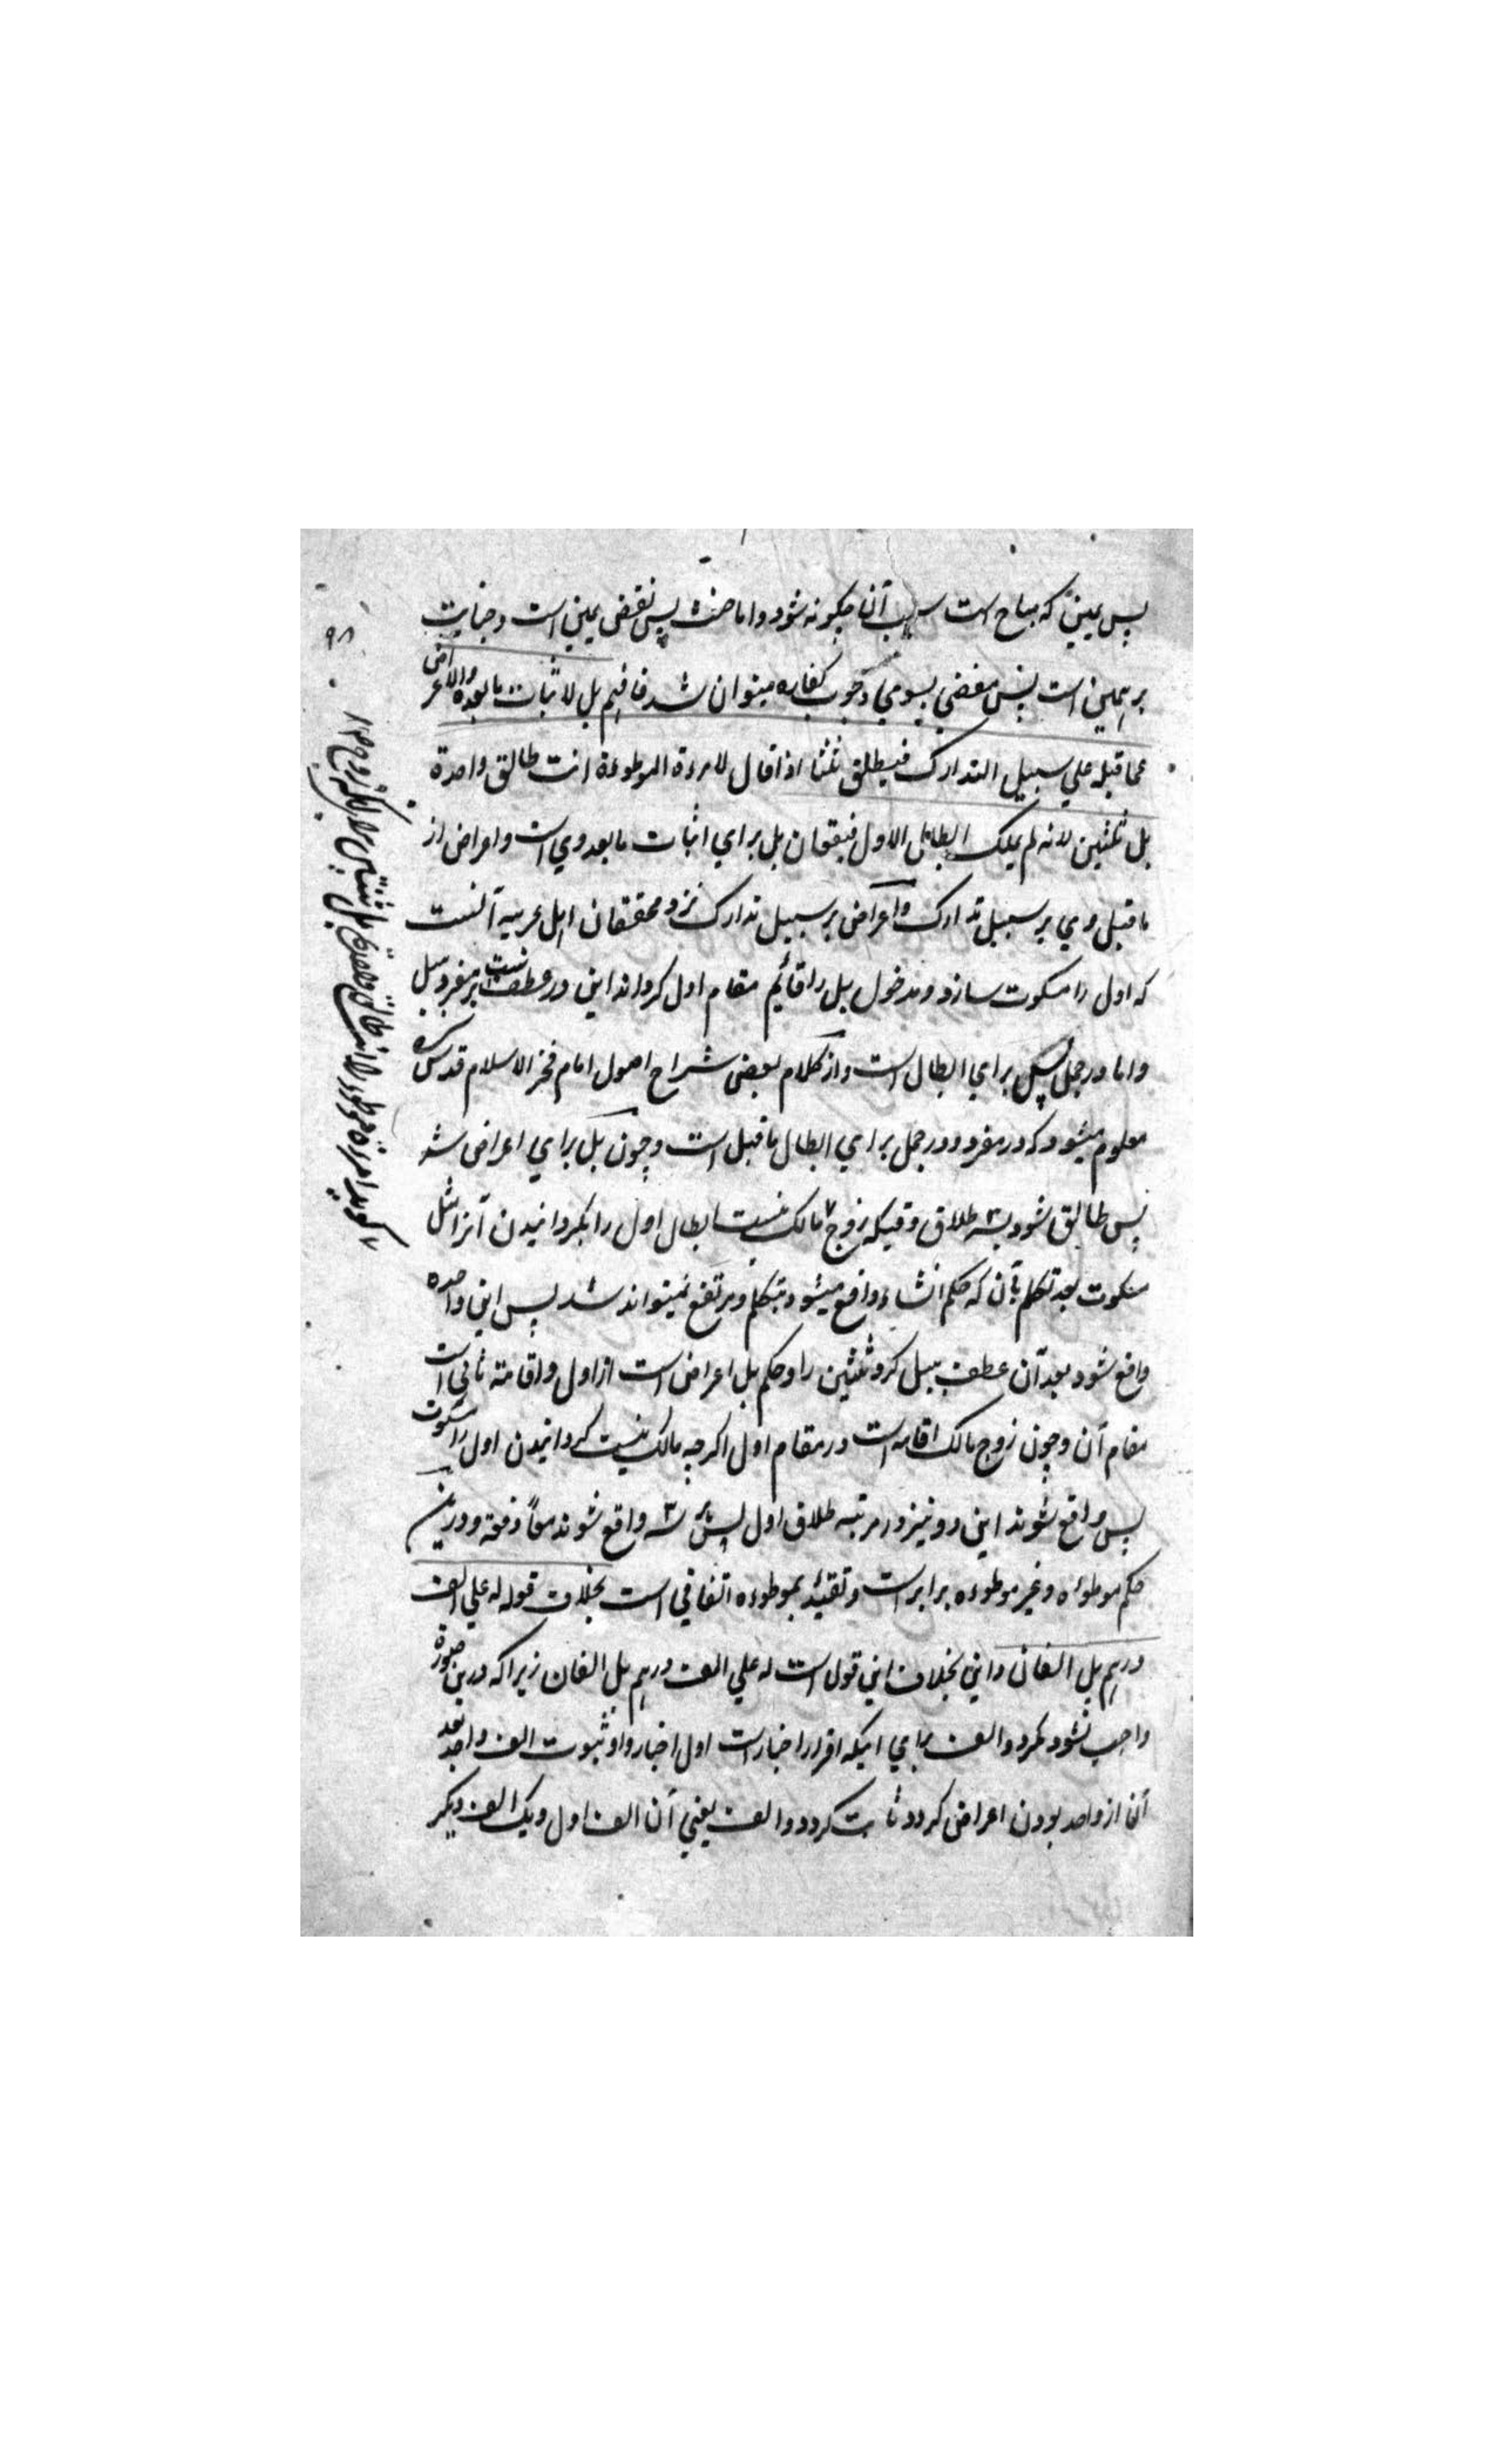 پس یمین که مباح است سبب آنا چکونه شود واما حنث پس نقض یمین است وجنایت
بر یمین است پس مفضی بسوی وجوب کفاره میتوان شد فافهم بل لاثبات مابعده والاعراض
عما قبله علی سبیل التدارک فیطلق ثلثا اذا قال لامرءة الموطوءة انت طالق واحدة
بل ثلثین لانه لم یملک ابطال الاول فیقعان بل برای اثبات مابعد وی است واعراض از
ماقبل وی بر سبیل تدارک واعراض بر سبیل تدارک نزد محققان اهل عربیه آنست
که اول را مسکوت سازد ومدخول بل را قائم مقام اول کرداند این در عطف است بر مفرد ببل
واما در جمل پس بل برای ابطال است واز کلام بعض شراح اصول امام فخر الاسلام قدس سره
معلوم میشود که در مفرد ودر جمل برای ابطال ماقبل است وچون بل برای اعراض شد
پس طالق شود بسه طلاق وقتیکه زوج مالک نیست ابطال اول را بکردانیدن آنرا مثل
مسکوت بعد تکلم بآن که حکم انشاء واقع میشود بتکلم ومرتفع نمیتواند شد پس این واحده
واقع شود بعد آن عطف ببل کرد ثلثین را وحکم بل اعراض است از اول واقامته ثانی است
مقام آن وچون زوج مالک اقامه است در مقام اول اکرچه مالک نیست کردانیدن اول را مسکوت
پس واقع شوند این دو نیز در مرتبه طلاق اول پس سه واقع شوند معاً دفعة ودرین
حکم موطوءه وغیر موطوءه برابر است وتقیید بموطوءه اتفاقی است بخلاف قوله له علی الف
درهم بل الفان واین بخلاف این قول است له علی الف درهم بل الفان زیرا که درین صورة
واجب نشود مکر دو الف برای اینکه اقرار اخبار است اول اخبار داد ثبوت الف واحد بعد
آن از واحد بودن اعراض کرد وثابت کرد دو الف یعنی آن الف اول ویک الف دیکر